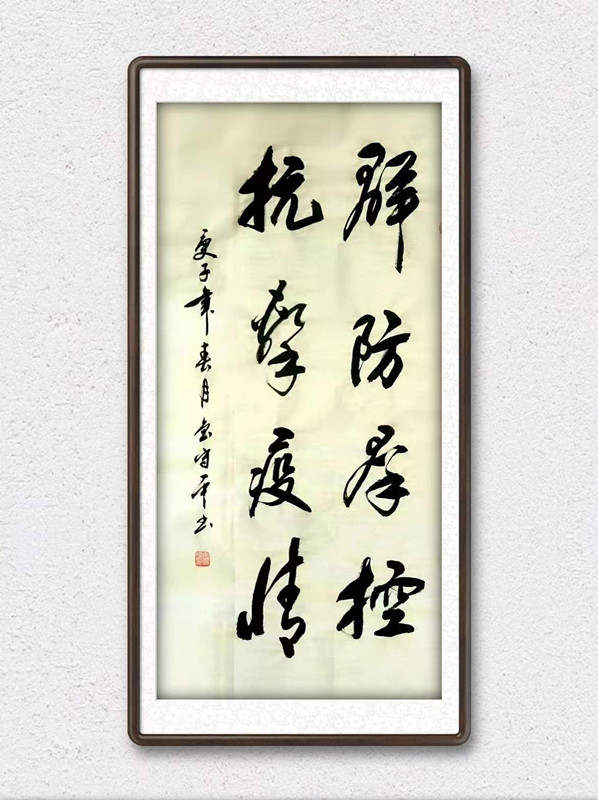 群防群控
抗擊疫情
庚子年春月